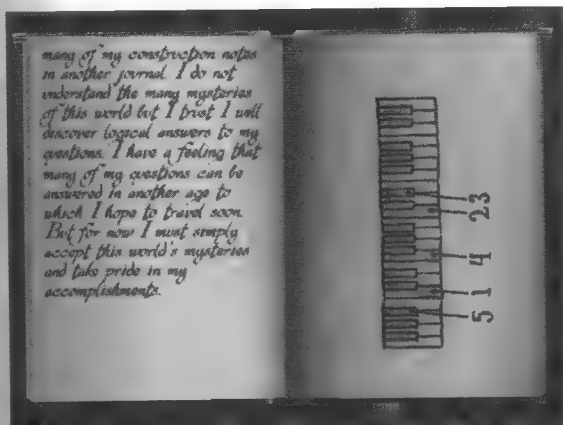 many of my construction notes
in another journal. I do not
understand the many mysteries
of this world but I trust I will
discover logical answers to my
questions. I have a feeling that
many of my questions can be
answered in another age to
which I hope to travel soon.
But for now I must simply
accept this world's mysteries
and take pride in my
accomplishments.
2 3
4
1
5